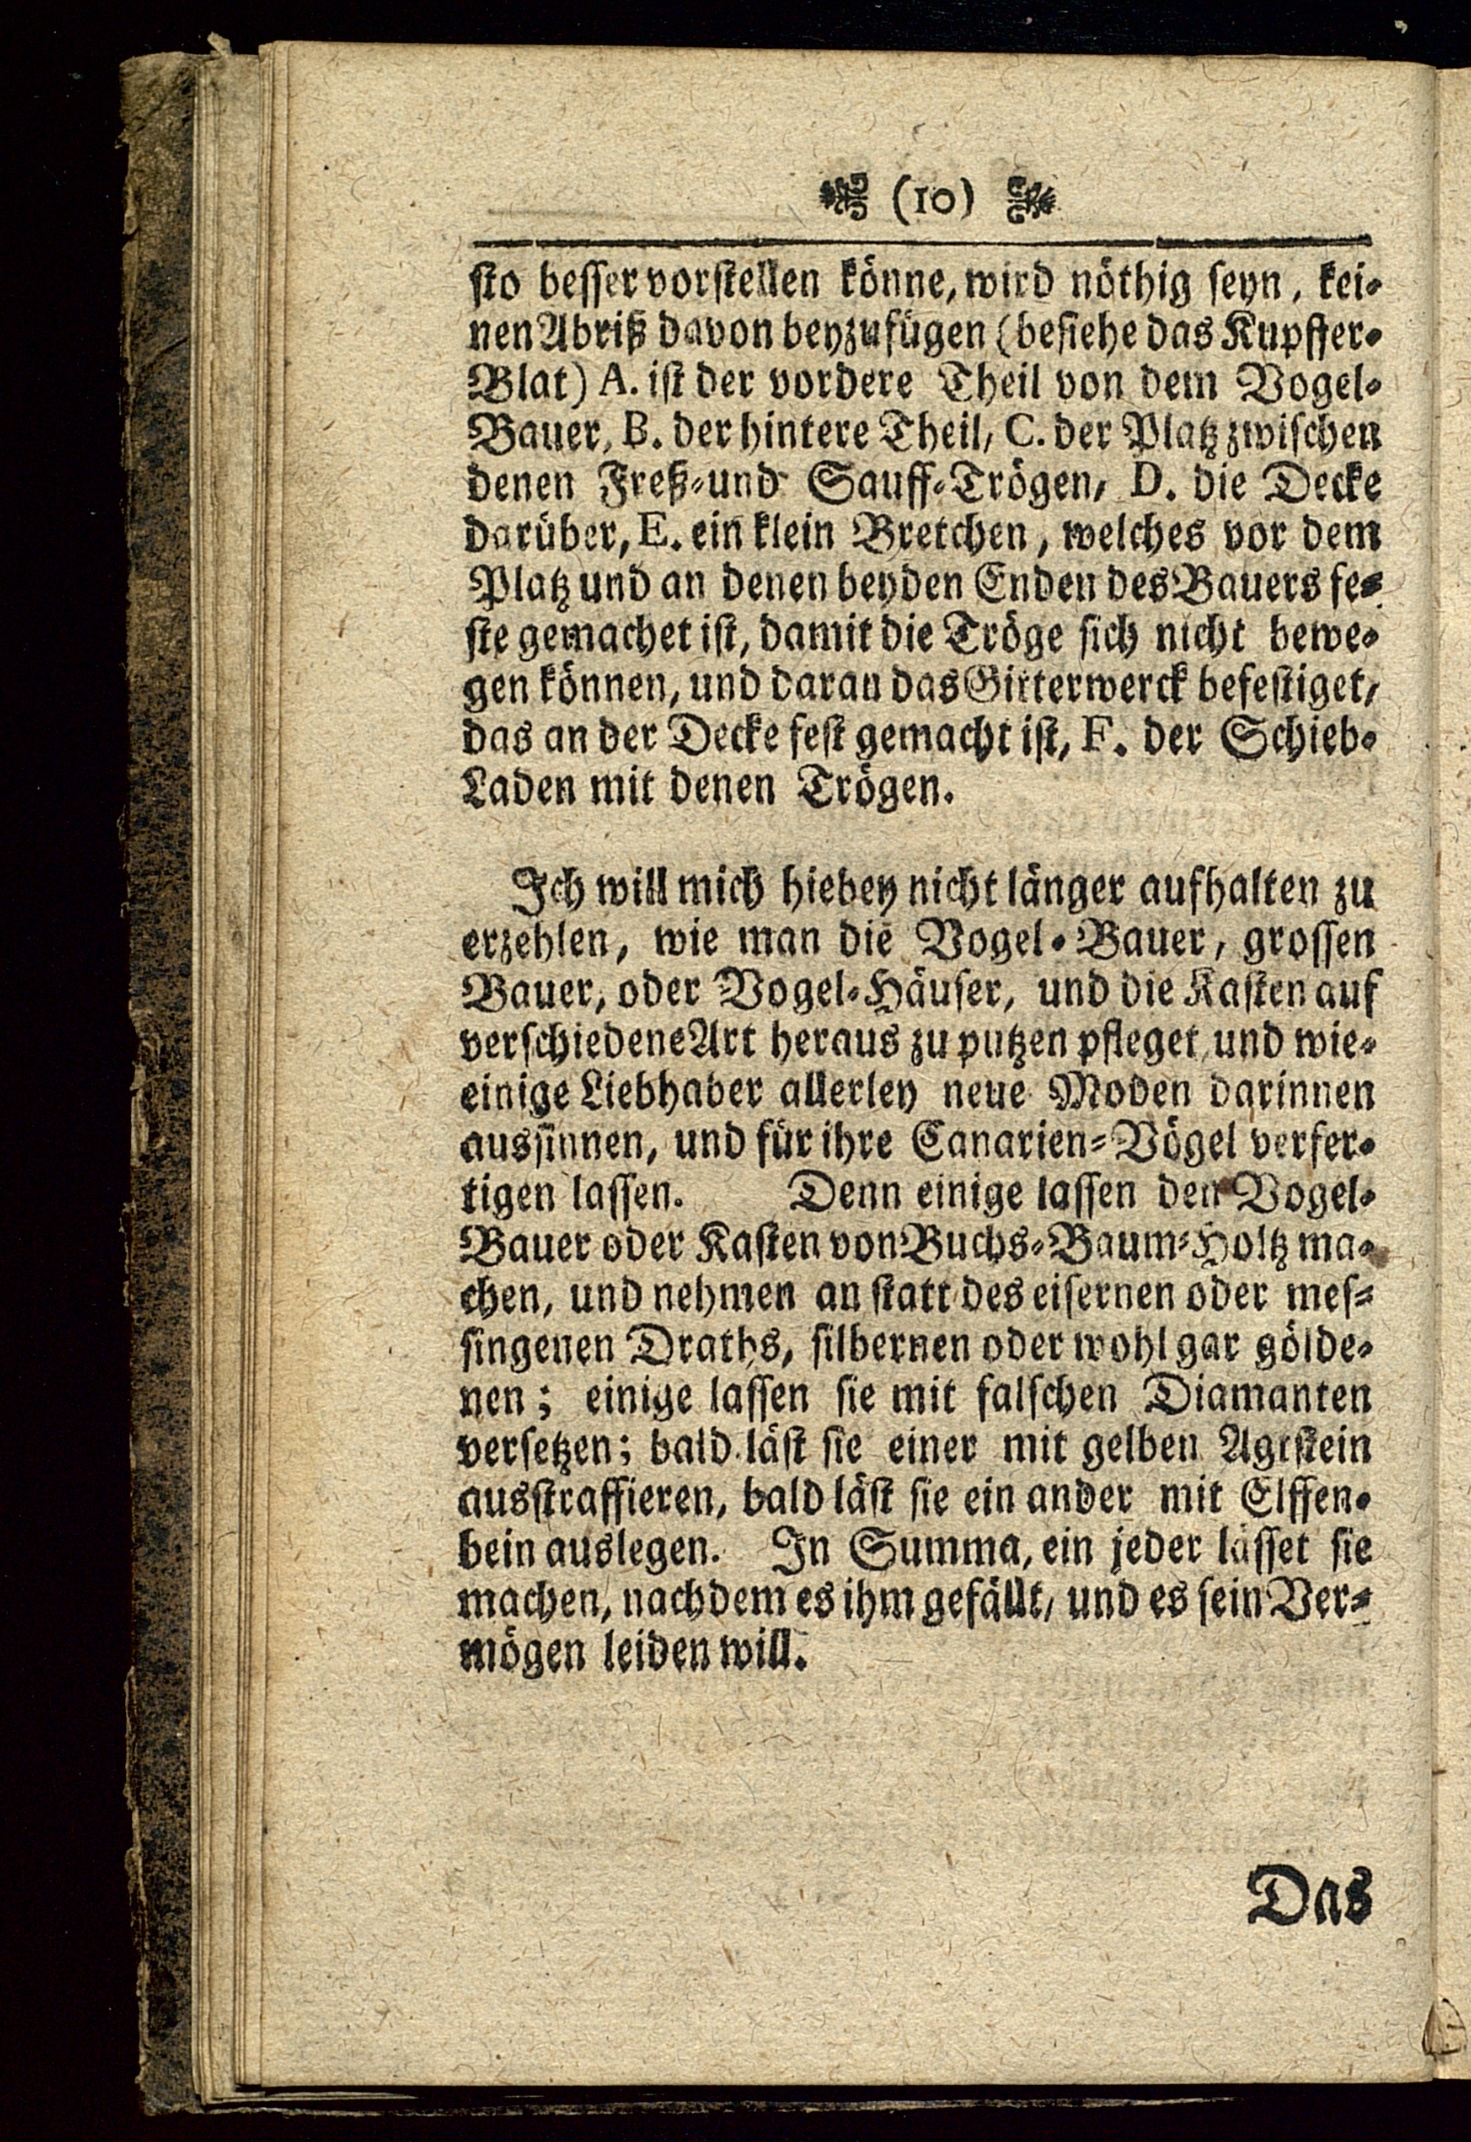 (10)
sto besser vorstellen könne, wird nöthig seyn, kei-
nen Abriß davon beyzufügen (besiehe das Kupffer-
Blat) A. ist der vordere Theil von dem Vogel-
Bauer, B. der hintere Theil, C. der Platz zwischen
denen Freß-und Sauff-Trögen, D. die Decke
darüber, E. ein klein Bretchen, welches vor dem
Platz und an denen beyden Enden des Bauers fe-
ste gemachet ist, damit die Tröge sich nicht bewe-
gen können, und daran das Gitterwerck befestiget,
das an der Decke fest gemacht ist, F. der Schieb-
Laden mit denen Trögen.
Ich will mich hiebey nicht länger aufhalten zu
erzehlen, wie man die Vogel-Bauer, grossen
Bauer, oder Vogel-Häuser, und die Kasten auf
verschiedene Art heraus zu putzen pfleget, und wie-
einige Liebhaber allerley neue Moden darinnen
aussinnen, und für ihre Canarien-Vögel verfer-
tigen lassen. Denn einige lassen den Vogel-
Bauer oder Kasten von Buchs-Baum-Holtz ma-
chen, und nehmen an statt des eisernen oder mes-
singenen Draths, silbernen oder wohl gar gölde-
nen; einige lassen sie mit falschen Diamanten
versetzen; bald läst sie einer mit gelben Agtstein
ausstraffieren, bald läst sie ein ander mit Elffen-
bein auslegen. In Summa, ein jeder lässet sie
machen, nachdem es ihm gefällt, und es sein Ver-
mögen leiden will.
Das